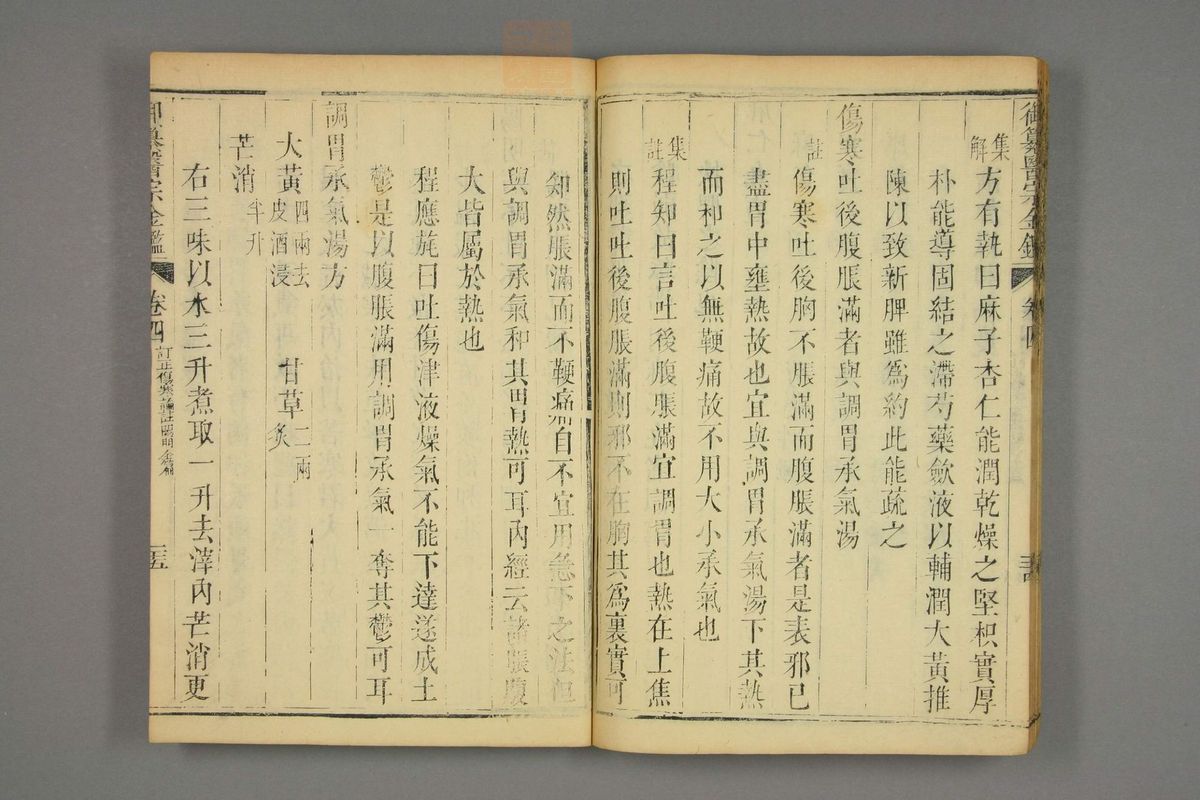 御纂醫宗金鑑 卷四
集解 方有執曰麻子杏仁能潤乾燥之堅枳實厚
朴能導固結之滯芍藥斂液以輔潤大黃推
陳以致新脾雖為約此能疏之
傷寒吐後腹脹滿者與調胃承氣湯
註 傷寒吐後胸不脹滿而腹脹滿者是表邪已
盡胃中壅熱故也宜與調胃承氣湯下其熱
而和之以無鞕痛故不用大小承氣也
集註 程知曰言吐後腹脹滿宜調胃也熱在上焦
則吐吐後腹脹滿則邪不在胸其為裏實可
知然脹滿而不鞕痛自不宜用急下之法但
與調胃承氣和其胃熱可耳內經云諸脹腹
大皆屬於熱也
程應旄曰吐傷津液燥氣不能下達遂成土
鬱是以腹脹滿用調胃承氣一奪其鬱可耳
調胃承氣湯方
大黃四兩去皮酒浸 甘草二兩炙
芒消半升
右三味以水三升煮取一升去滓內芒消更
御纂醫宗金鑑 卷四 訂正傷寒論註陽明全篇 三五